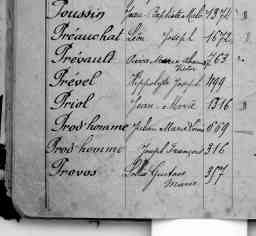 Poussin Jean Baptiste Marie 1374
Préauchat Léon Joseph 1672
Prévault Marie 763
Victor
Prével Hippolyte Joseph 499
Priol Jean Marie 1316
Prod'homme Julien Marie Louis 669
Prod'homme Joseph François 316
Provos Gustave 357
Marie